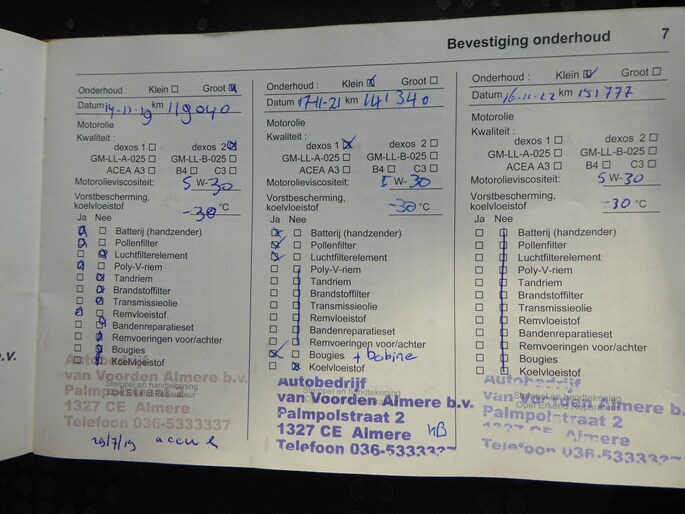 Bevestiging onderhoud 7
Onderhoud : Klein Groot
Datum 14-11-19 km 119040
Motorolie
Kwaliteit :
dexos 1 dexos 2
GM-LL-A-025 GM-LL-B-025
ACEA A3 B4 C3
Motorolieviscositeit: 5 W-30
Vorstbescherming,
koelvloeistof -30 °C
Ja Nee
Batterij (handzender)
Pollenfilter
Luchtfilterelement
Poly-V-riem
Tandriem
Brandstoffilter
Transmissieolie
Remvloeistof
Bandenreparatieset
Remvoeringen voor/achter
Bougies
Koelvloeistof
Autobedrijf
van Voorden Almere b.v.
Stempel en handtekening
Opel Erkend Reparateur
1327 CE Almere
Telefoon 036-5333337
29/7/19 accu
Onderhoud : Klein Groot
Datum 17-11-21 km 141 340
Motorolie
Kwaliteit :
dexos 1 dexos 2
GM-LL-A-025 GM-LL-B-025
ACEA A3 B4 C3
Motorolieviscositeit: 5 W-30
Vorstbescherming,
koelvloeistof -30 °C
Ja Nee
Batterij (handzender)
Pollenfilter
Luchtfilterelement
Poly-V-riem
Tandriem
Brandstoffilter
Transmissieolie
Remvloeistof
Bandenreparatieset
Remvoeringen voor/achter
Bougies + bobine
Koelvloeistof
Autobedrijf
Stempel en handtekening
van Voorden Almere b.v.
Palmpolstraat 2
1327 CE Almere
Telefoon 036-5333337
Onderhoud : Klein Groot
Datum 16-11-22 km 151777
Motorolie
Kwaliteit :
dexos 1 dexos 2
GM-LL-A-025 GM-LL-B-025
ACEA A3 B4 C3
Motorolieviscositeit: 5 W-30
Vorstbescherming,
koelvloeistof -30 °C
Ja Nee
Batterij (handzender)
Pollenfilter
Luchtfilterelement
Poly-V-riem
Tandriem
Brandstoffilter
Transmissieolie
Remvloeistof
Bandenreparatieset
Remvoeringen voor/achter
Bougies
Koelvloeistof
Autobedrijf
Stempel en handtekening
van Voorden Almere b.v.
Opel Erkend Reparateur
Palmpolstraat 2
Almere
Telefoon 036-5333337